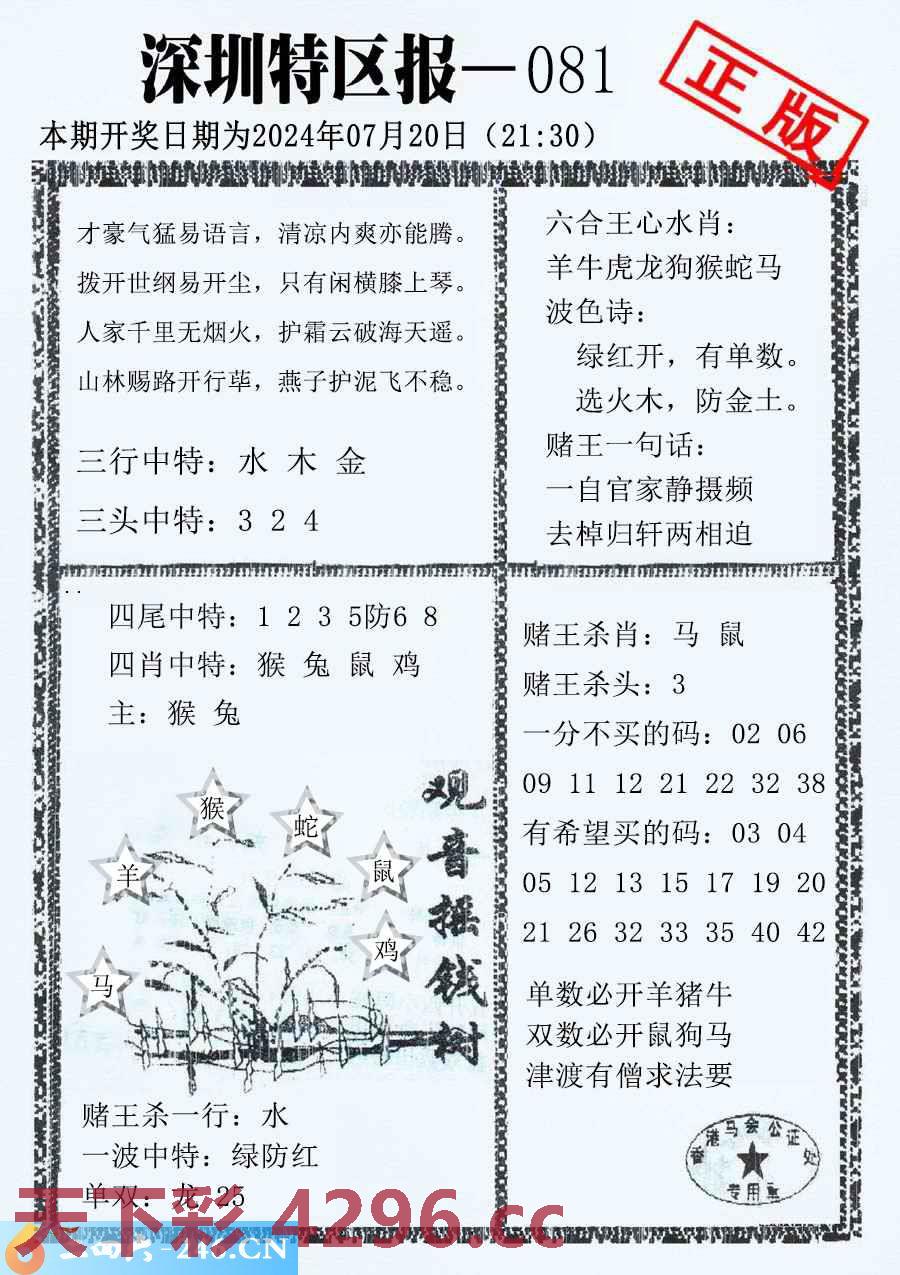 深圳特区报—081
正版
本期开奖日期为2024年07月20日（21:30）
才豪气猛易语言，清凉内爽亦能腾。
拨开世纲易开尘，只有闲横膝上琴。
人家千里无烟火，护霜云破海天遥。
山林赐路开行荜，燕子护泥飞不稳。
三行中特：水 木 金
三头中特：3 2 4
六合王心水肖：
羊牛虎龙狗猴蛇马
波色诗：
绿红开，有单数。
选火木，防金土。
赌王一句话：
一自官家静摄频
去棹归轩两相迫
四尾中特：1 2 3 5防6 8
四肖中特：猴 兔 鼠 鸡
主：猴 兔
猴
蛇
羊
鼠
鸡
马
观音摇钱树
赌王杀一行：水
一波中特：绿防红
单双：龙 25
赌王杀肖：马 鼠
赌王杀头：3
一分不买的码：02 06
09 11 12 21 22 32 38
有希望买的码：03 04
05 12 13 15 17 19 20
21 26 32 33 35 40 42
单数必开羊猪牛
双数必开鼠狗马
津渡有僧求法要
香港马会公证处
专用章
天下彩 4296.cc